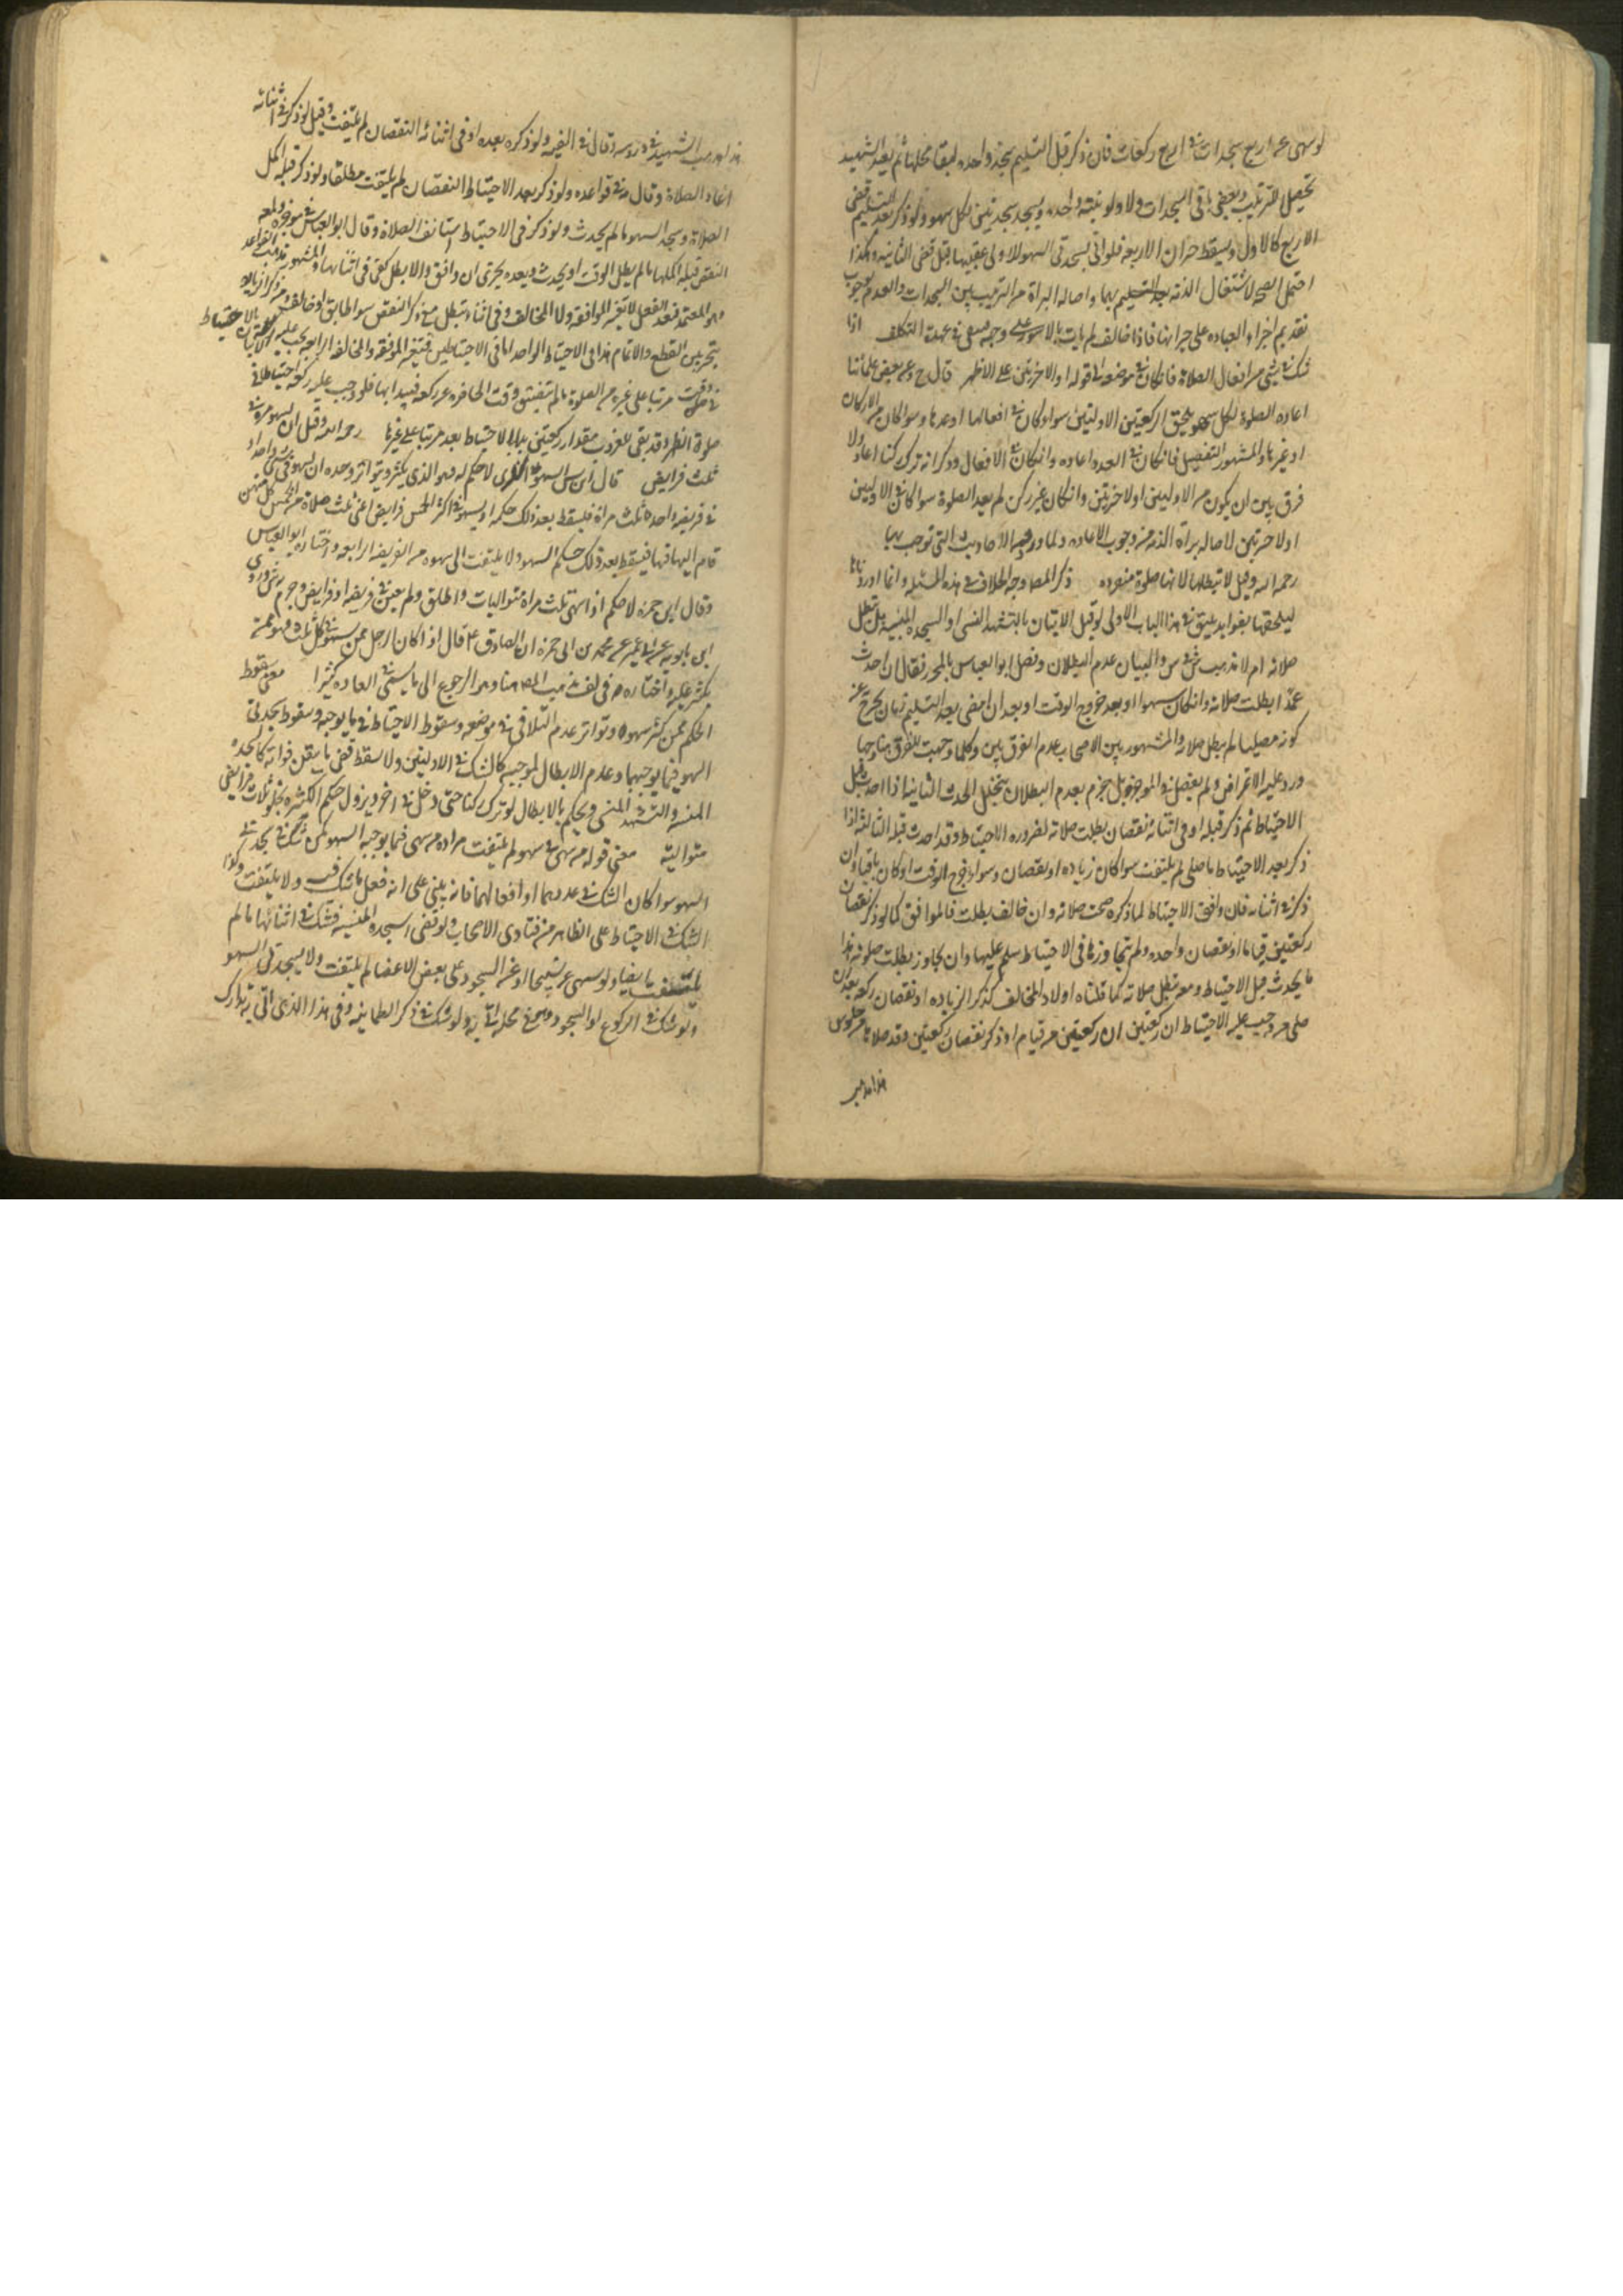 لوسهى عن اربع سجدات في اربع ركعات فان ذكر قبل التسليم سجد واحده لبقا محلها ثم يعيد التشهد
تحصيل للترتيب ويقضي باقي السجدات ولاولو نيته واحده ويسجد سجدتين لكل سهو ولو ذكر بعد التسليم قضى
الاربع كالاول ويسقط جبران الاربعه فلو اتى بسجدتي السهو للاولى عقيبها قبل قضى الثانيه وهكذا
احتمل الصحه لاشتغال الذمه بعد التسليم بهما واصالة البراة من الترتيب بين السجدات والعدم لوجوب
تقديم اجزاء العباده على جبرانها فاذا خالف لم يات بالمامور على وجهه فيبقى في عهدة التكلف اذا
شك في شي من افعال الصلاة فان كان في موضعه الى قوله او الاخرتين على الاظهر قال ح وعن بعض علمائنا
اعاده الصلوة لكل سهو يلحق الركعتين الاوليتين سوا كان في افعالها او عددها وسوا كان من الاركان
او غيرها والمشهور التفصيل فان كان في العدد اعاده وان كان في الافعال وذكر انه ترك ركنا اعاد ولا
فرق بين ان يكون من الاوليين او الاخرتين وان كان غير ركن لم يعد الصلوة سوا كان في الاوليين
او الاخرتين لاصالة براة الذمه من وجوب الاعاده ولما ورد من الاحاديث التي توجب بها
رحمه الله وقيل لا تبطلها لانها صلوة منفرده ذكر المصا وجه الخلاف في هذه المسئله وانما اوردناها
ليلحقها بفوايد يليق في هذا الباب الاولى لو قبل الاتيان بالتشهد المنسي او السجده المنسيه هل تبطل
صلاته ام لا مذهب ش في س والبيان عدم البطلان وفصل ابو العباس بالمحرر فقال ان احدث
عمدا بطلت صلاته وان كان سهوا او بعد خروج الوقت او بعد ان امضى بعد التسليم زمان يخرج عن
كونه مصليا لم يبطل صلاته والمشهور بين الاصحاب عدم الفرق بين وكلما وجهت للفرق بينا وجها
ورد عليه الاعتراض ولم يفصل في الموجز بل جزم بعدم البطلان بتخلل الحدث الثانيه اذا احدث قبل
الاحتياط ثم ذكر قبله او في اثنائه نقصان بطلت صلاته لضروره الاحتياط وقد احدث قبله الثالثه اذا
ذكر بعد الاحتياط ما صلى لم يلتفت سوا كان زياده او نقصان وسواء خرج الوقت او كان باقيا وان
ذكر في اثنائه فان وافق الاحتياط لما ذكره صحت صلاته وان خالف بطلت فالموافق كما لو ذكر نقصان
ركعتين قياما او نقصان واحده ولم يتجاوزها في الاحتياط سلم عليها وان تجاوز بطلت صلوته هذا
ما يحدث قبل الاحتياط ومعه تبطل صلاته كما قلناه اولا والمخالف كذكر الزياده او نقصان ركعه بعد ان
صلى من وجب عليه الاحتياط ان ركعتين ان ركعتين من قيام او ذكر نقصان ركعتين وقد صلاها من جلوس
هذا مذهب
هذا مذهب الشهيد في دروسه وقال في الفيه ولو ذكره بعده او في اثنائه النقصان لم يلتفت وقيل لو ذكر في اثنائه
اعاد الصلاة وقال في قواعده ولو ذكر بعد الاحتياط النقصان لم يلتفت مطلقا ولو ذكر قبله اكمل
الصلاة وسجد السهو ما لم يحدث ولو ذكر في الاحتياط استانف الصلاة وقال ابو العباس في موجزه لو علم
النقص قبله اكملها ما لم يطل الوقت او يحدث وبعده يجزى ان وافق والا بطل كفى في اثنائها والمشهور مذهب القواعد
وهو المعتمد فبعد الفعل لا تعتبر الموافقه ولا المخالف وفي اثنائه تبطل مع ذكر النقص سوا طابق او خالف ومع ذكر الزياده
يتخير بين القطع والاتمام هذا في الاحتياط الواحد اما في الاحتياطين فتعتبر الموافقه والمخالفه الرابعه يجب عليه الاتيان بالاحتياط
مرتبا على غيره من الصلوة ما لم يتضيق وقت الحاضره عن ركعه فيبدا بها فلو وجب عليه ركعة احتياطا في
صلوة الظهر وقد بقى للغروب مقدار ركعتين بدا بالاحتياط بعد مرتبا على غيرها رحمه الله وقيل ان يسهو مره في
ثلث فرايض قال ابن ادريس السهو الذي لا حكم له فهو الذي يكثر ويتواتر وحده ان يسهو في شي واحد او
في فريضه واحده ثلث مراة فيسقط بعد ذلك حكمه او يسهو في اكثر الخمس فرايض اعني ثلث صلاة من الخمس كل منهن
قام اليها فيها فيسقط بعد ذلك حكم السهو ولا يلتفت الى سهوه من الفريضه الرابعه واختاره ابو العباس
وقال ابن حمزه لا حكم له اذا سهى ثلث مراة متواليات واطلق ولم يعين في فريضه او فرايض وجزم ش وروى
ابن بابويه عن ابن ابي عمير عن محمد بن ابي حمزه ان الصادق ع قال اذا كان الرجل ممن يسهو في كل ثلث فهو ممن
يكثر عليه واختاره في لف مذهب المصا هنا وهو الرجوع الى ما يسمى في العاده كثيرا معنى سقوط
الحكم عمن كثر سهوه وتواتر عدم التلافي في موضعه وسقوط الاحتياط في ما يوجبه وسقوط سجدتي
السهو فيما يوجبهما وعدم الابطال لموجبه كالشك في الاوليتين ولا يسقط قضى ما يتيقن فواته كالسجده
المنسيه والتشهد المنسي ويحكم بالابطال لو ترك ركنا حتى دخل في اخر ويزول حكم الكثره بخلو ثلاث فرايض
متواليه معنى قوله من سهى في سهو لم يلتفت مراده من سهى فيما يوجبه السهو كمن شك في سجدتي
السهو سوا كان الشك في عددهما او افعالهما فانه يبني على انه فعل ما شك فيه ولا يلتفت ولو
الشك في الاحتياط على الظاهر من فتاوى الاصحاب ولو قضى السجده المنسيه فشك في اثنائها ما لم
يلتفت ايضا ولو سهى عن تسبيحها او عن السجود على بعض الاعضا لم يلتفت ولا يسجد في السهو
ولو شك في الركوع او السجود وهو في محله اتى به ولو شك في ذكر الطمانينه وفي هذا الذي اتى به تدارك